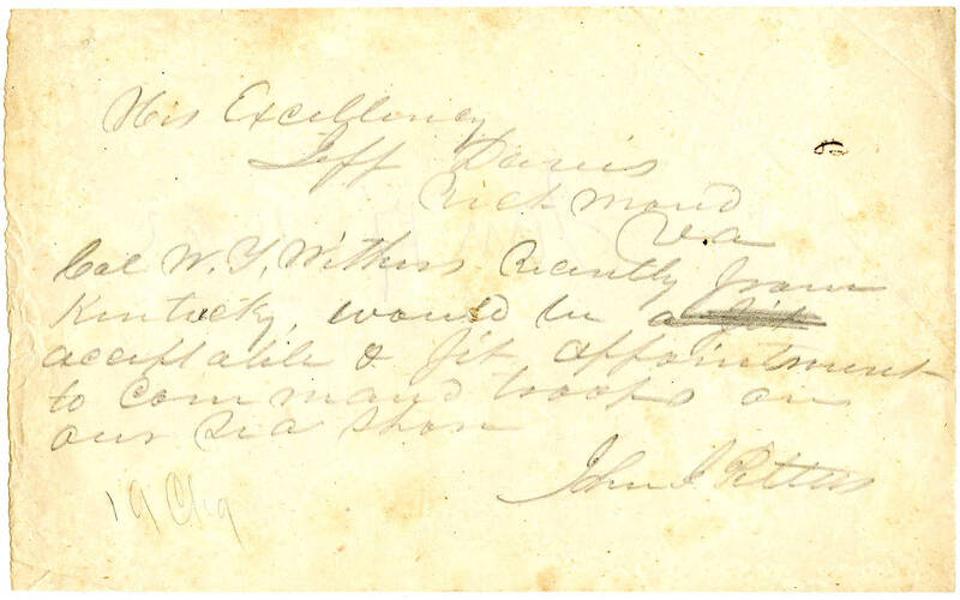 His Excellency
Jeff Davis
Richmond
Va
Col W. T. Withers recently from
Kentucky, would be a fit
acceptable & fit appointment
to command troops on
our Sea Shore
John J Pettus
19 Chg